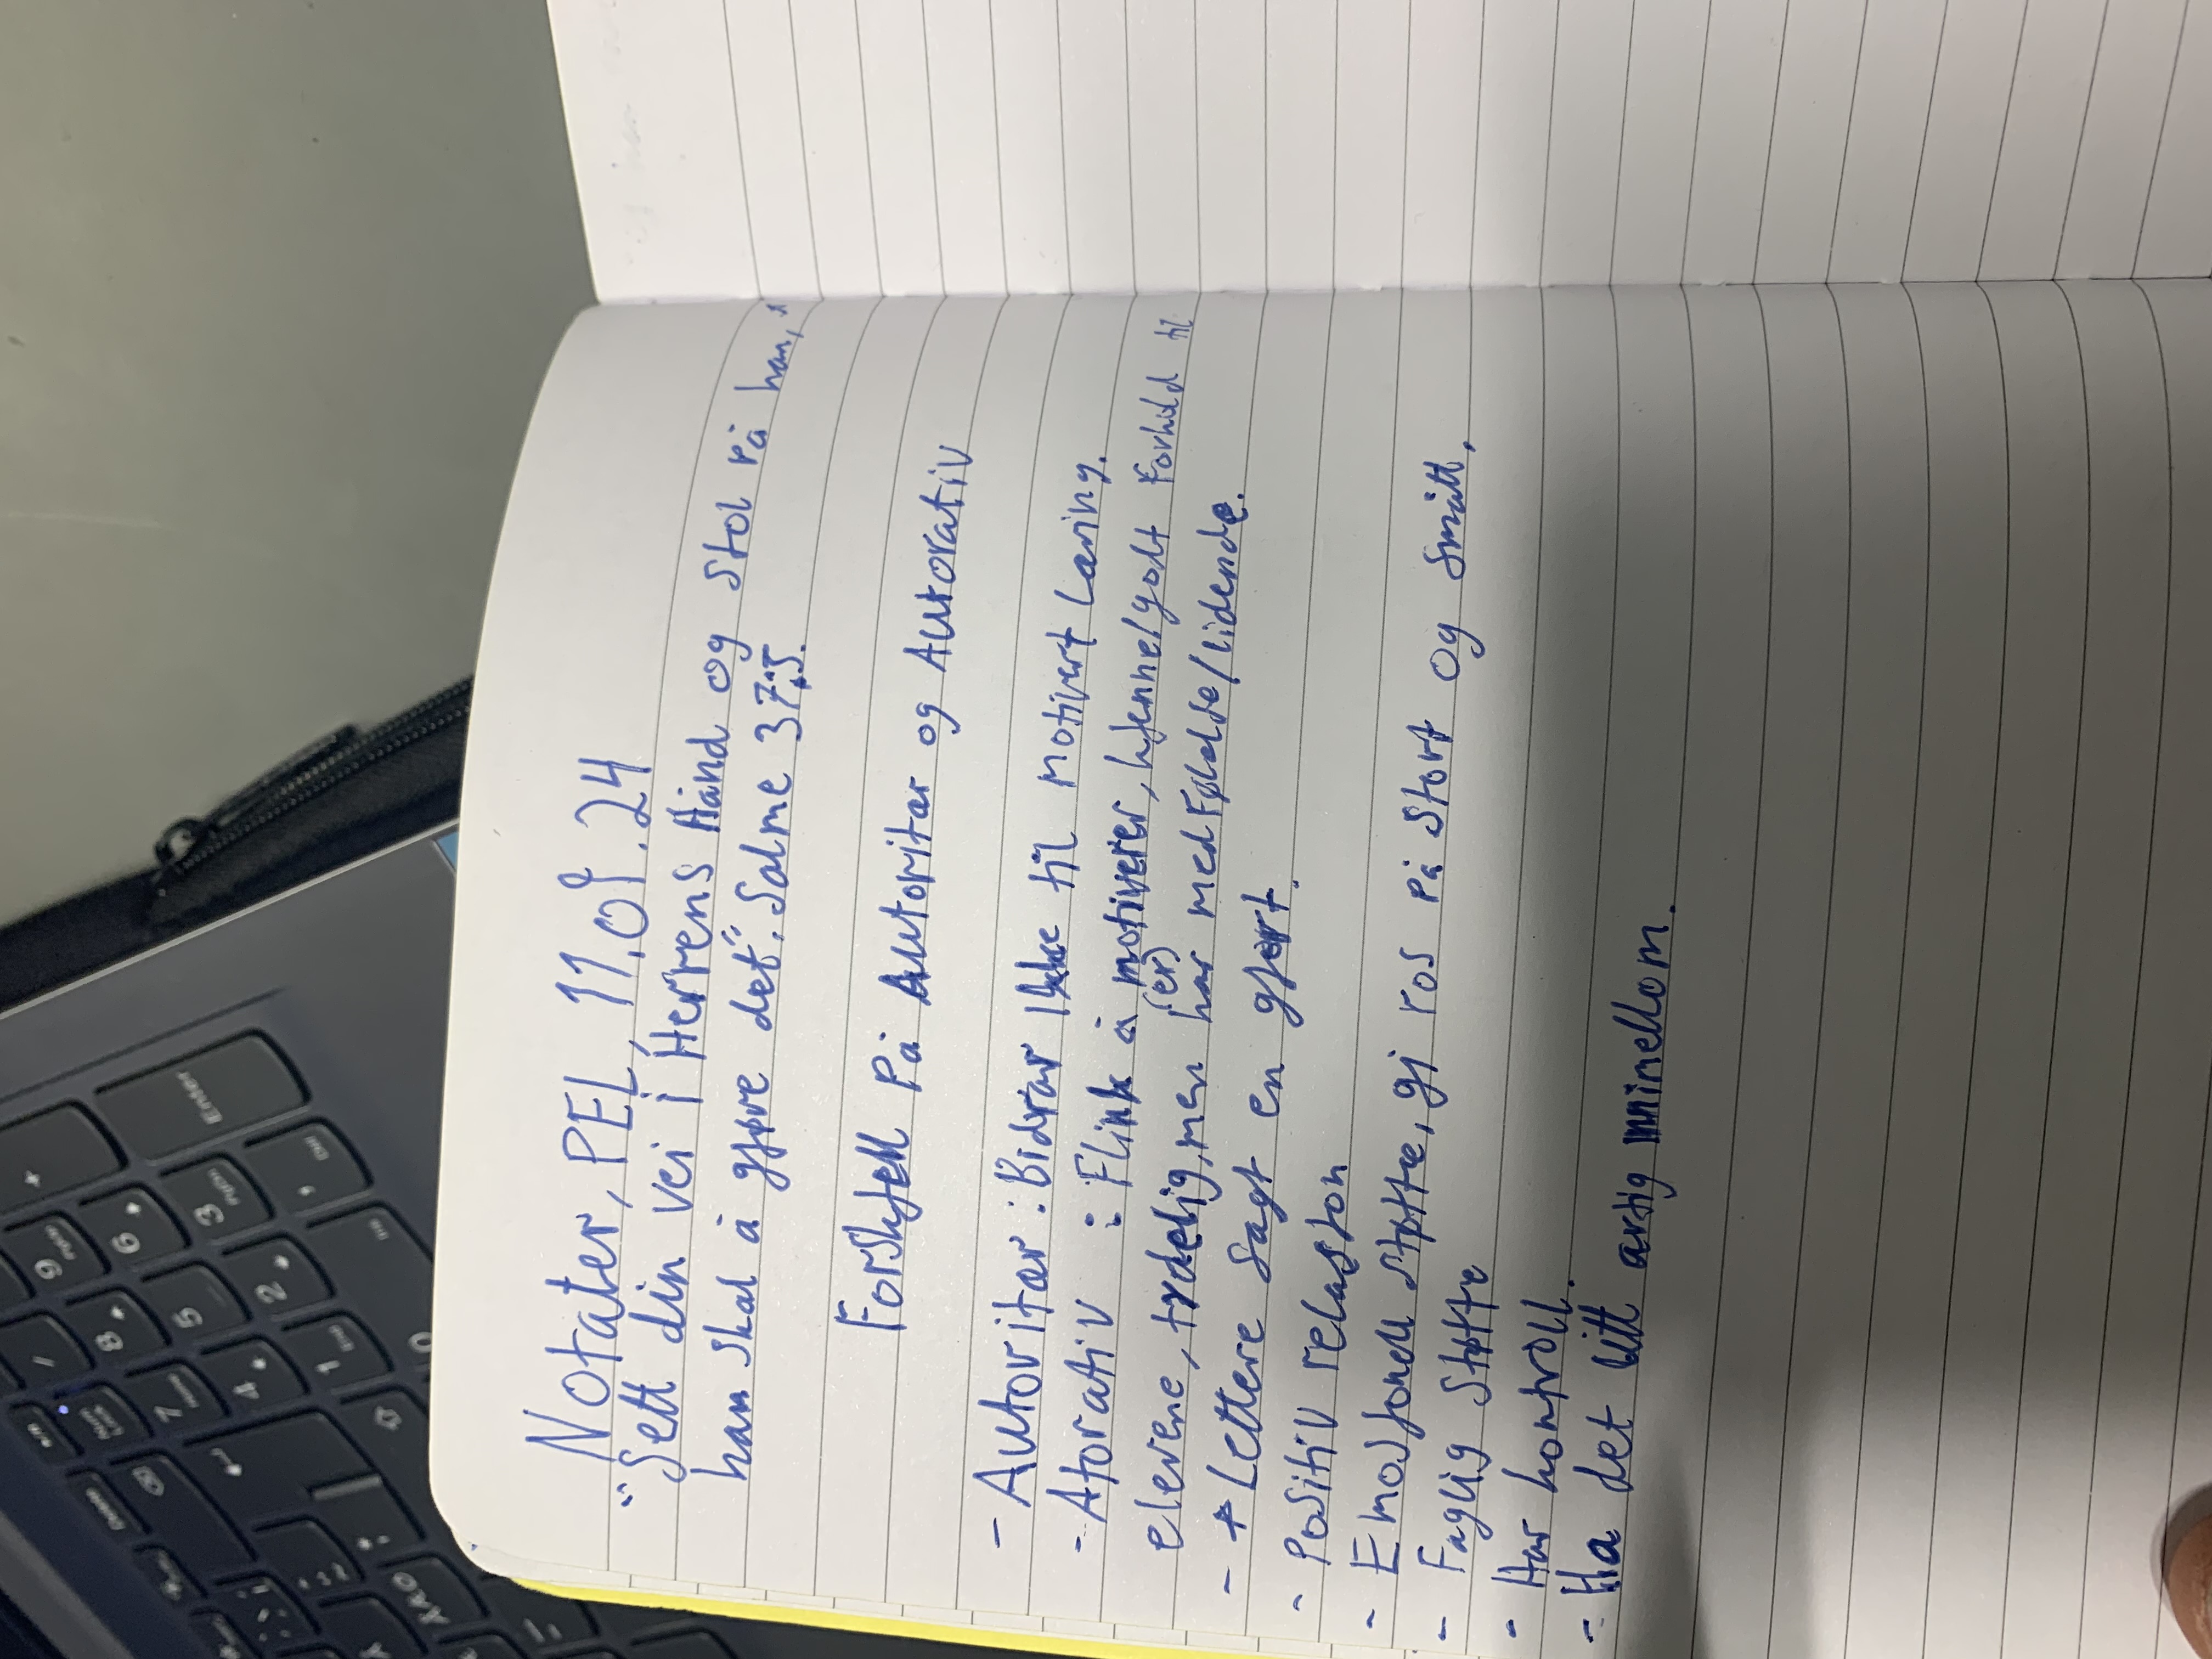 Notater, PEL, 11.09.24
"Sett din vei i Herrens Hånd og stol på han,
han skal å gjøre det". Salme 37:5.
Forskjell På Autoritær og Autorativ
- Autoritær: Bidrar ikke til motivert Læring.
- Atorativ : Flink å motiverer, kjenne/godt Forhold til
elevene, tydelig, men (er) har medfølelse/lidende.
- Lettere sagt en gjort.
- Positiv relasjon
- Emosjonell støtte, gi ros på stort og smått.
- Faglig støtte
- Har kontroll.
- Ha det litt artig innimellom.
Enter
+
6
9
3
PgDn
PgUp
Del
,
Ins
2
5
8
/
1
End
4
7
Home
Num
Lock
0
Delete
ÅÄÖ